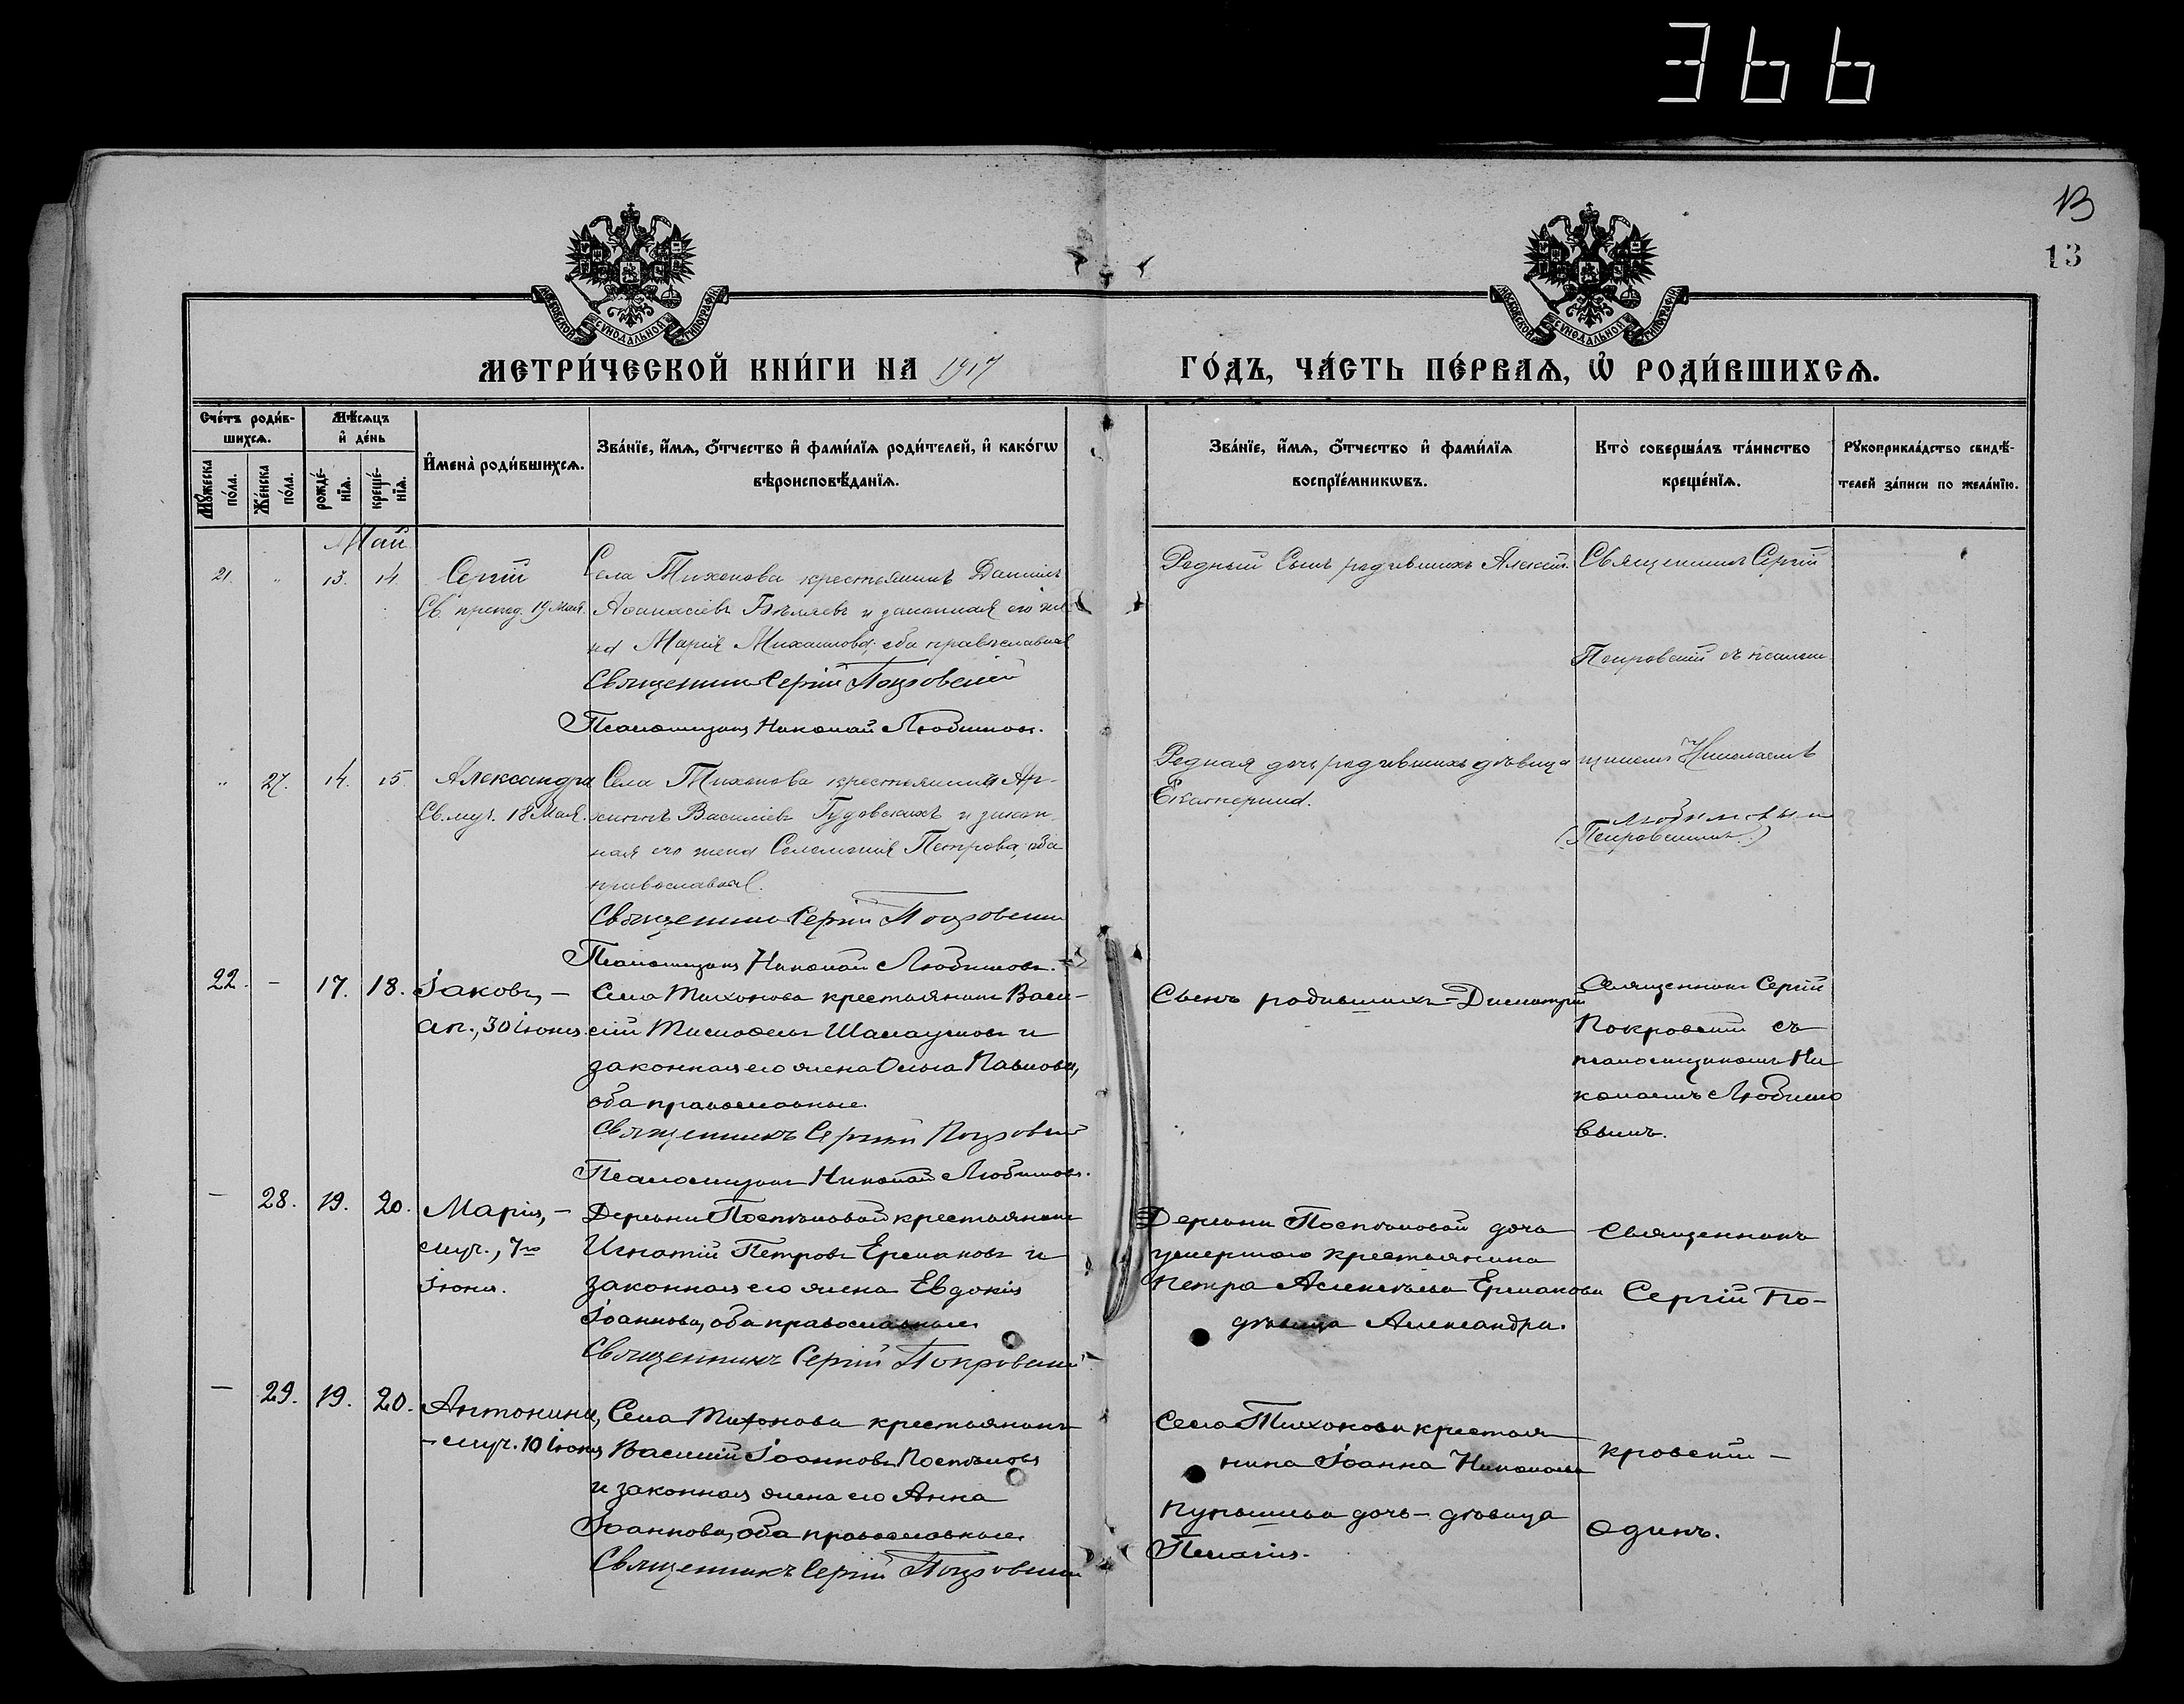 366
13
13
МОСКОВСКОЙ СѴНОДАЛЬНОЙ ТИПОГРАФІИ
МОСКОВСКОЙ СѴНОДАЛЬНОЙ ТИПОГРАФІИ
МЕТРИ́ЧЕСКОЙ КНИ́ГИ НА 1917 ГО́ДЪ, ЧА́СТЬ ПЕ́РВАЯ, Ѽ РОДИ́ВШИХСЯ.
Сче́тъ роди́в-
шихся.
Мѣ́сяцъ
и҆ де́нь
Мꙋ́жеска
по́ла.
Же́нска
по́ла.
рожде́-
нїѧ.
креще́-
нїѧ.
И҆мена̀ роди́вшихсѧ.
Зва́нїе, и҆́мѧ, ѻ҆́тчество и҆ фами́лїѧ роди́телей, и҆ како́гѡ
вѣроисповѣ́данїѧ.
Зва́нїе, и҆́мѧ, ѻ҆́тчество и҆ фами́лїѧ
воспрїе́мникѡвъ.
Кто̀ соверша́лъ та́инство
креще́нїѧ.
Рꙋкоприкла́дство свидѣ́-
телей за́писи по жела́нїю.
Май
21. " 13. 14. Сергій
Св. препод. 19 Мая.
Села Тихонова крестьянинъ Даніилъ
Аѳанасіевъ Бѣляевъ и законная его же-
на Марія Михаилова, оба православныя
Священникъ Сергій Покровскій
Псаломщикъ Николай Любимовъ.
Родный Сынъ родившихъ Алексій.
Священникъ Сергій
Покровскій съ псалом-
" 27. 14. 15. Александра
Св. муч. 18 Мая.
Села Тихонова крестьянинъ Ар-
хиппъ Василіевъ Гудовскихъ и закон-
ная его жена Соломонія Петрова, оба
православныя.
Священникъ Сергій Покровскій
Псаломщикъ Николай Любимовъ.
Родная дочь родившихъ дѣвица
Екатерина.
щикомъ Николаемъ
Любимовым
(Покровскимъ.)
22. - 17. 18. Іаковъ, -
ап., 30 іюня.
Села Тихонова крестьянинъ Васи-
лій Тимоѳеевъ и
законная его жена Ольга Павлова,
оба православные.
Священникъ Сергій Покровскій
Псаломщикъ Николай Любимовъ.
Сынъ родившихъ - Димитрій
Священникъ Сергій
Покровскій съ
псаломщикомъ Ни
колаемъ Любимо
вымъ.
- 28. 19. 20. Марія, -
муч., 7го
іюня.
Деревни Постъловой крестьянинъ
Игнатій Петровъ Ермаковъ и
законная его жена Евдокія
Іоаннова, оба православные.
Священникъ Сергій Покровскій
Деревни Постъловой дочь
умершаго крестьянина
Петра Алексѣева Ермакова
дѣвица Александра.
Священникъ
Сергій По-
- 29. 19. 20. Антонина,
- муч. 10 іюня
Села Тихонова крестьянинъ
Василій Іоанновъ Постъловъ
и законная жена его Анна
Іоаннова, оба православные.
Священникъ Сергій Покровскій
Села Тихонова крестья-
нина Іоанна Николаева
дочь - дѣвица
Пелагія.
кровскій -
Одинъ.